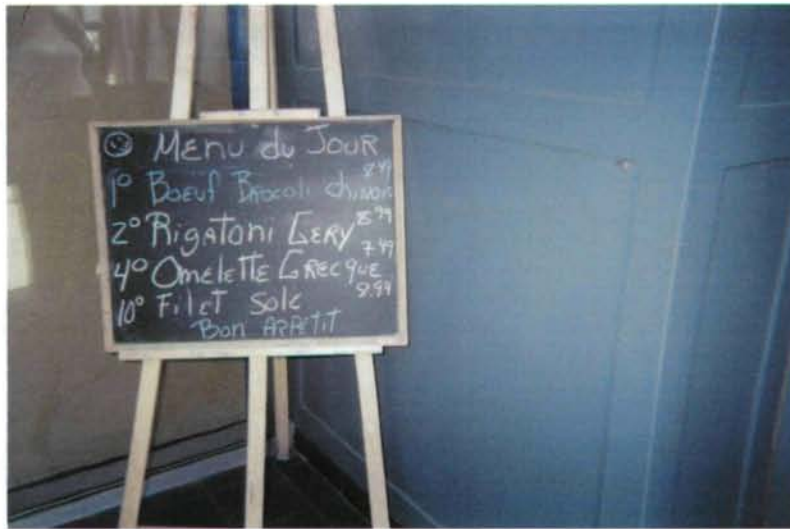 Menu du Jour
1° Boeuf Brocoli chinois 8.49
2° Rigatoni Gery 8.99
4° Omelette Grecque 7.49
10° Filet Sole 8.99
Bon Appetit